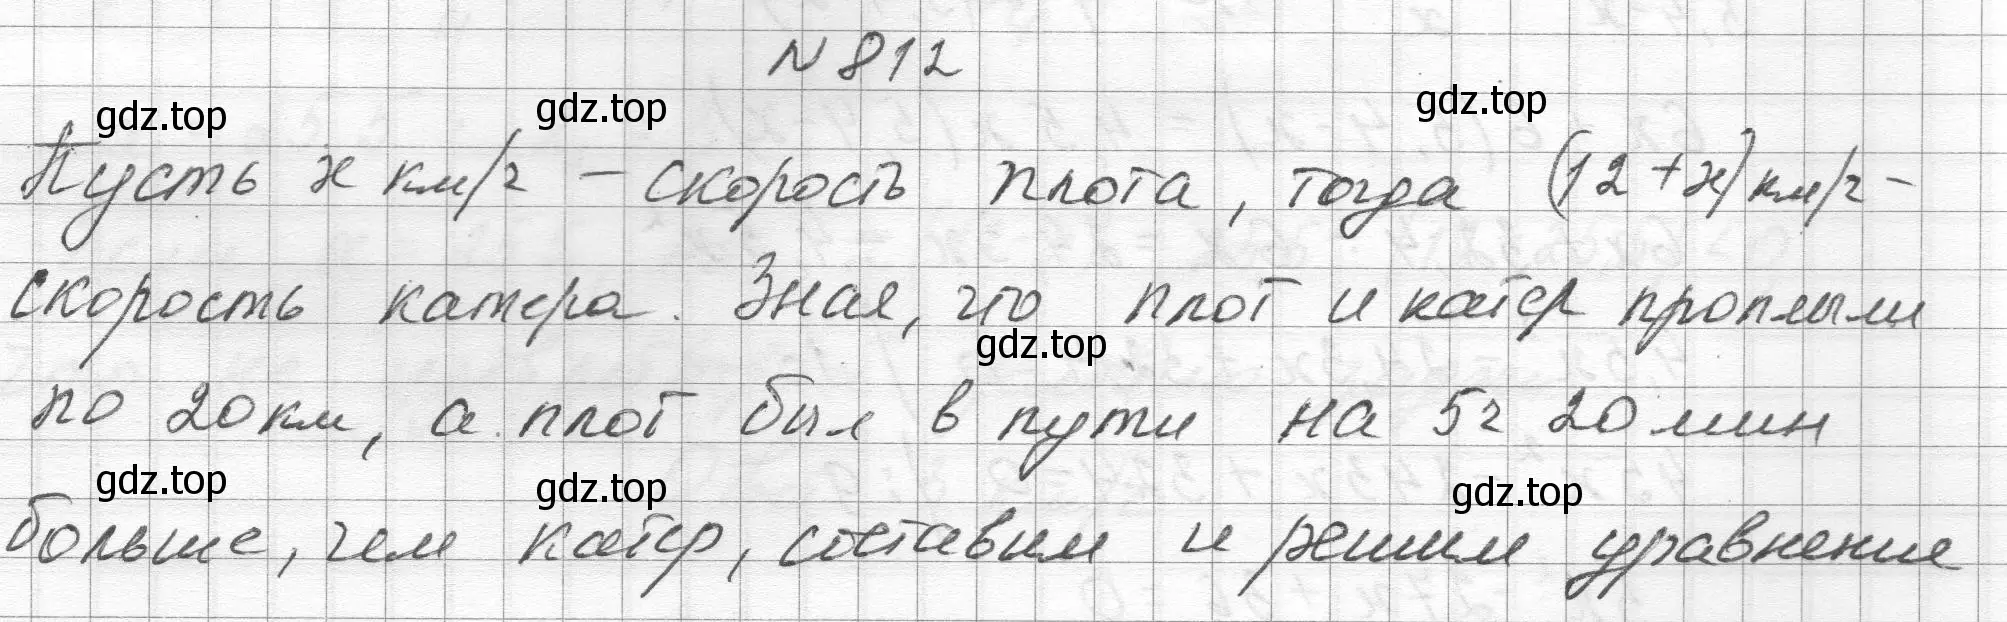 N 812
gdz.top gdz.top gdz.top
Пусть x км/ч – скорость плота, тогда (12+x) км/ч –
скорость катера. Зная, что плот и катер проплыли
gdz.top
по 20 км, а плот был в пути на 5ч 20 мин
gdz.top gdz.top gdz.top
больше, чем катер, составим и решим уравнение